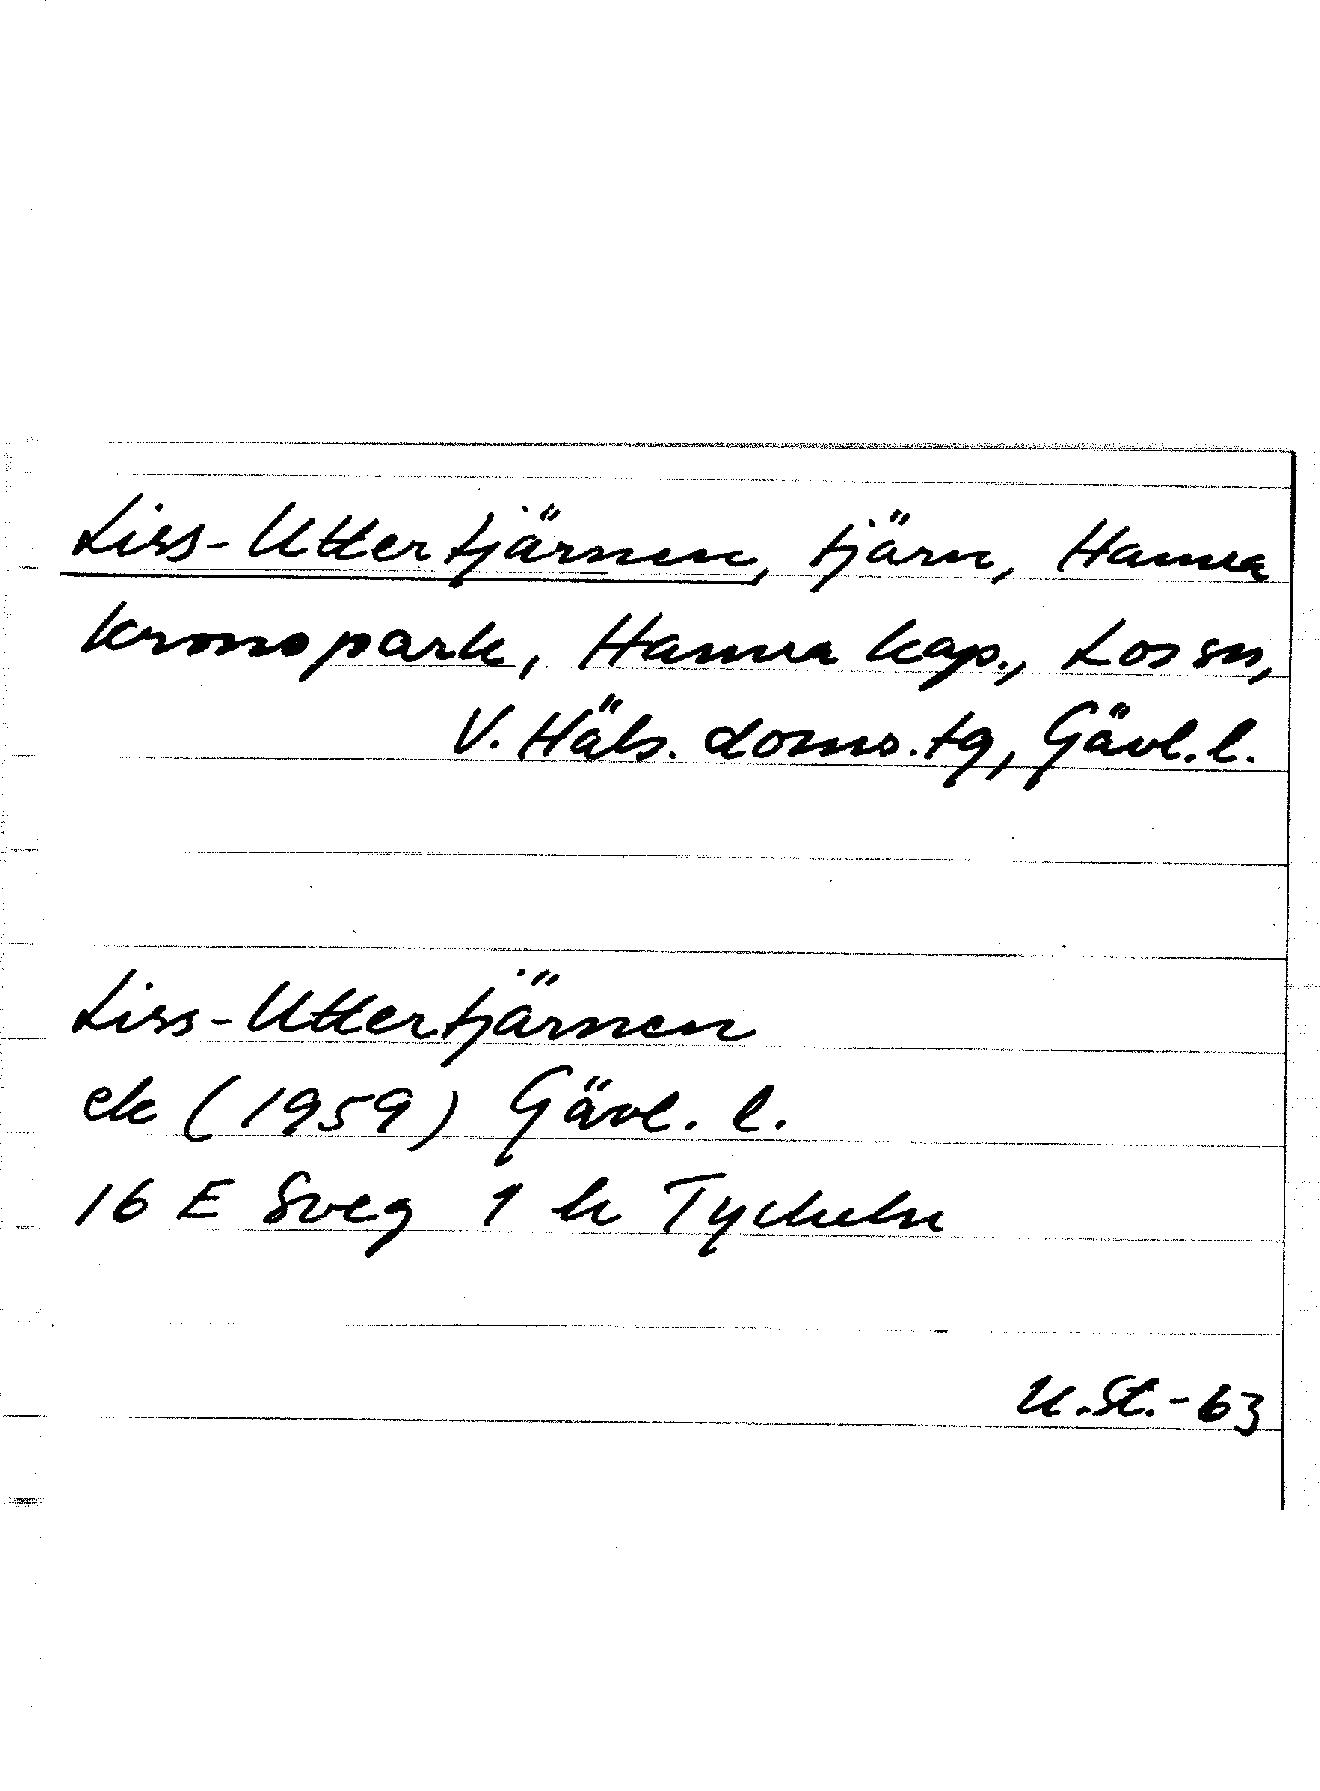 Liss-Uttertjärnen, tjärn, Hamra
kronopark, Hamra kap., Los sn,
V. Häls. doms. tg, Gävl. l.
Liss-Uttertjärnen
ek (1959) Gävl. l.
16 E Sveg 1 h Tyckeln
U.St.-63